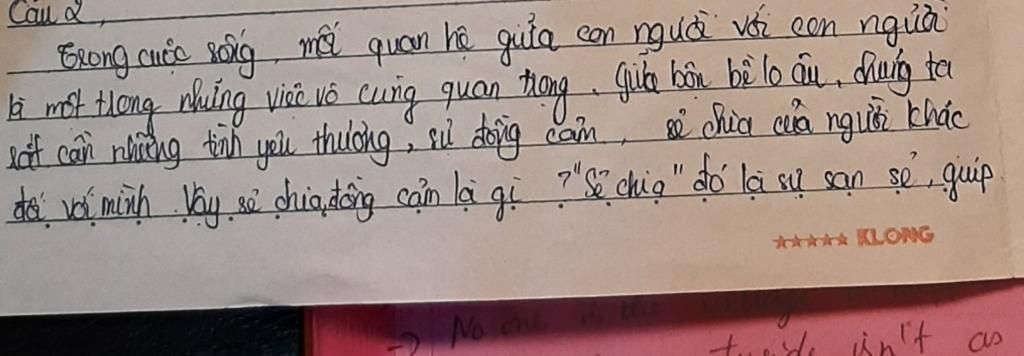 Câu 2,
Trong cuộc sống, mối quan hệ giữa con người với con người
là một trong những việc vô cùng quan trọng. Giữa bộn bề lo âu, chúng ta
rất cần những tình yêu thương, sự đồng cảm, sẻ chia của người khác
đối với mình. Vậy sẻ chia, đồng cảm là gì? "Sẻ chia" đó là sự san sẻ, giúp
★★★★★ KLONG
→ No one in the
isn't as